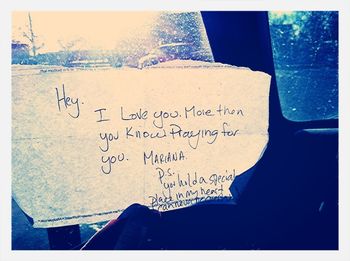 Hey.
I Love you. More then
you Know. Praying for
you. MARIANA.
P.S.
you hold a special
place in my heart